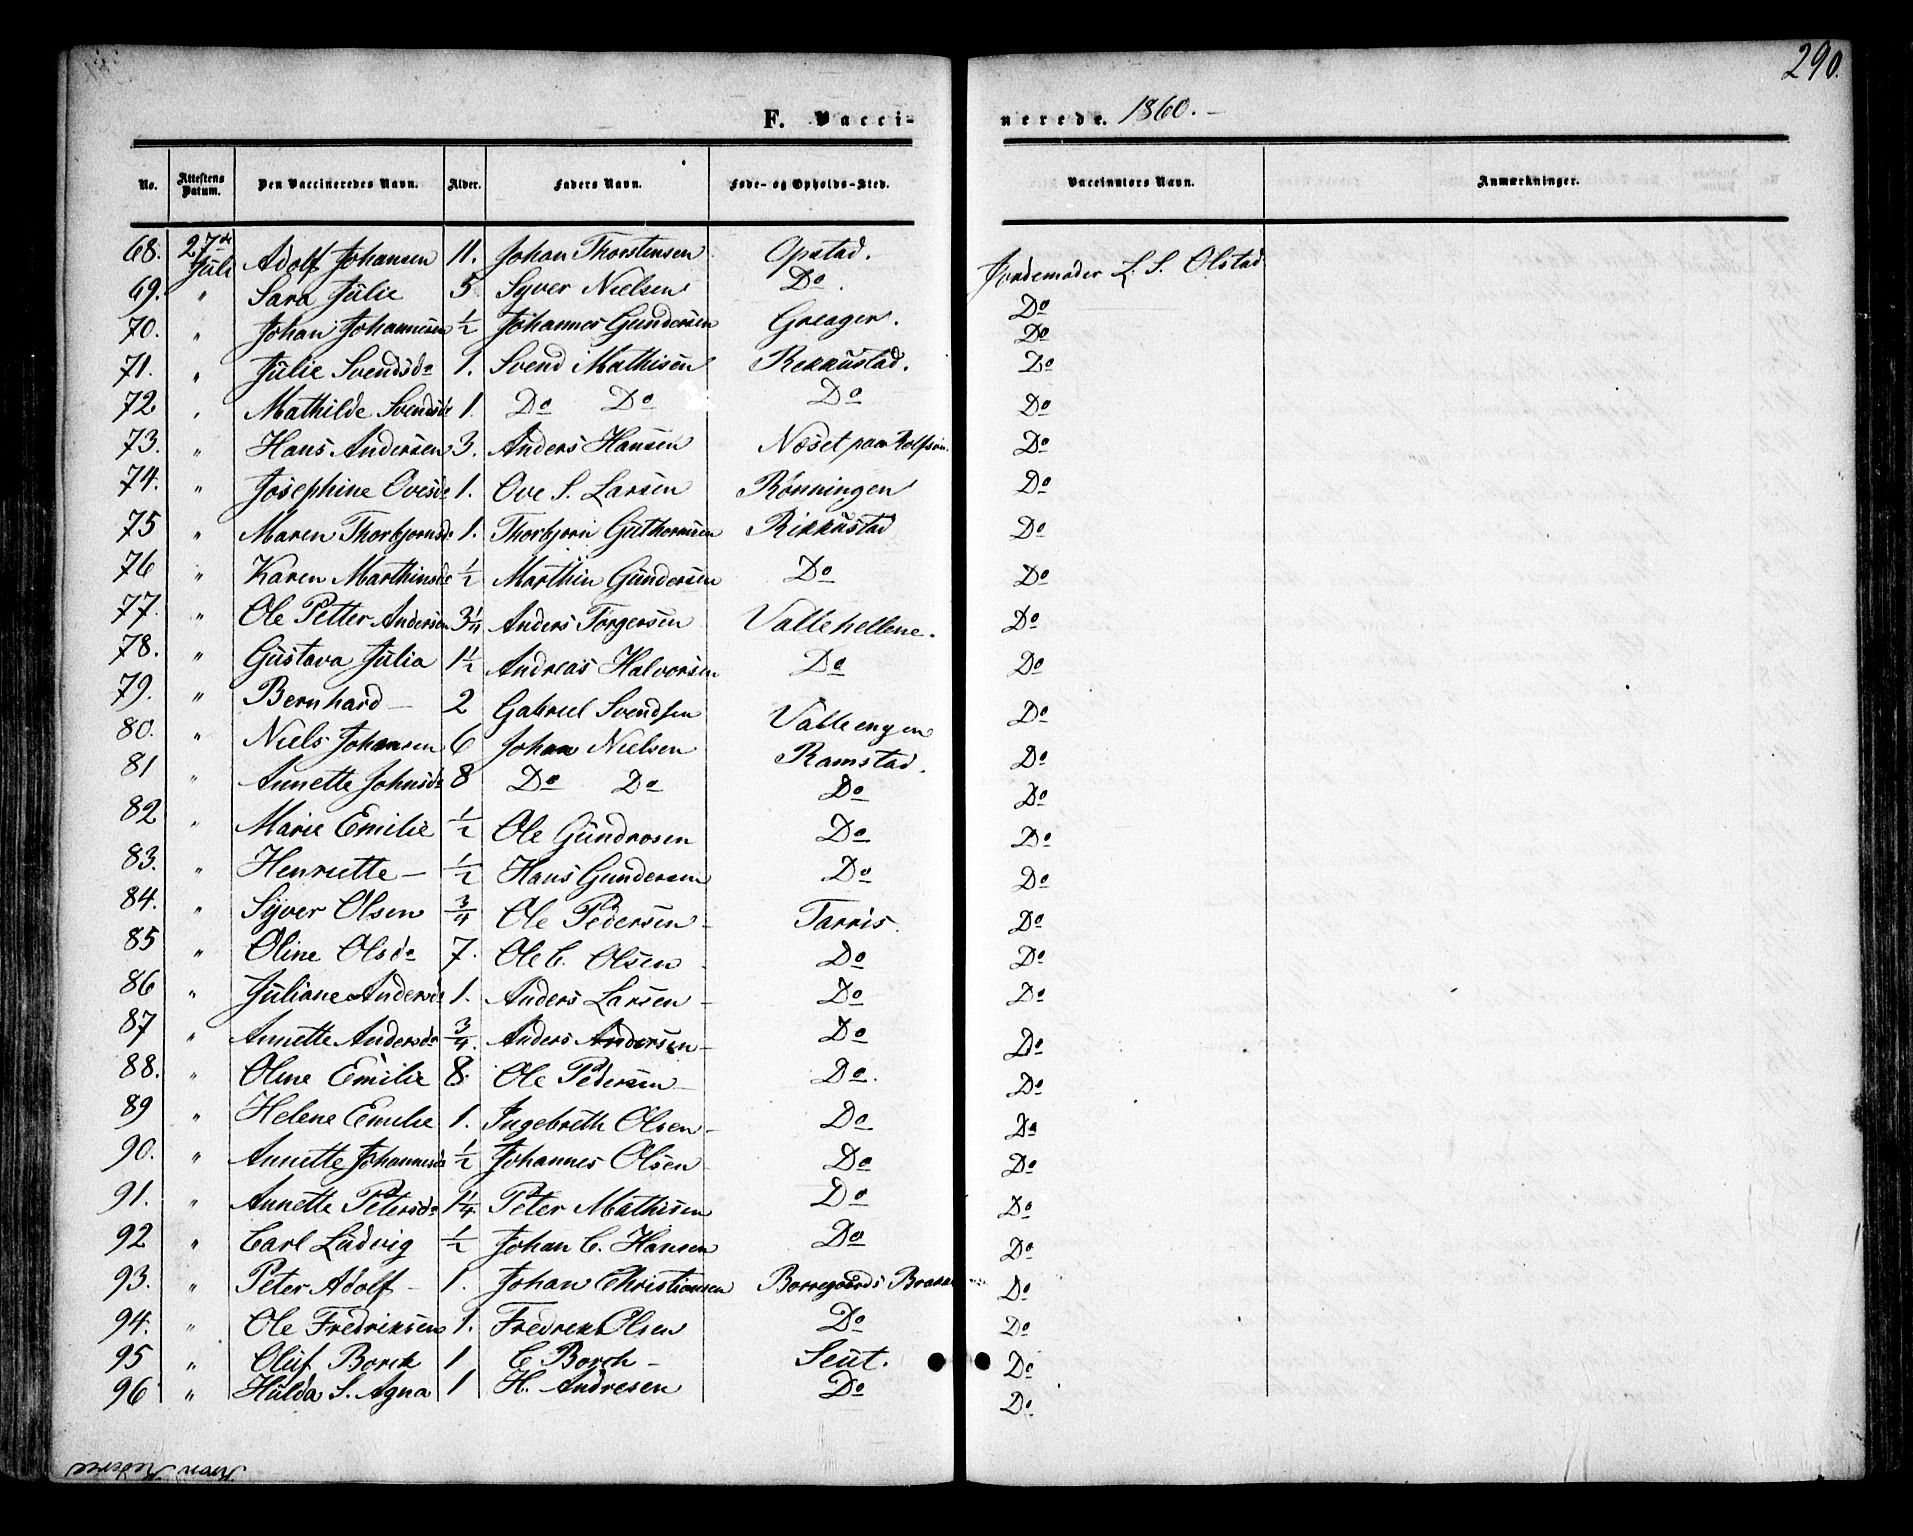 290.
F. Vaccinerede. 1860. -
No. Attestens Datum. Den Vaccineredes Navn. Alder. Faders Navn. Føde- og Opholds-Sted. Vaccinators Navn. Anmærkninger.
68. 27de Juli Adolf Johansen 11. Johan Thorstensen Opstad. Jordemoder L. S. Olstad
69. " Sara Julie 5 Syver Nielsen Do. Do
70. " Johan Johannesen 1/2 Johannes Gundersen Greager. Do
71. " Julie Svendsd. 1. Svend Mathisen Rekkustad. Do
72. " Mathilde Svendsd. 1 Do Do Do Do
73. " Hans Andersen 3. Anders Hansen Neset paa Do
74. " Josephine Ovesd. 1. Ove S. Larsen Rønningen Do
75 " Maren Thorbjornsd. 1. Thorbjorn Guthormsen Rikkustad Do
76 " Karen Marthinsd. 1/2 Marthin Gundersen Do Do
77. " Ole Petter Andersen 3 1/4 Anders Torgersen Vallehellene. Do
78. " Gustava Julia 1 1/2 Andreas Halvorsen Do Do
79. " Bernhard - 2 Gabriel Svendsen Valleengen Do
80. " Niels Johansen 6 Johan Nielsen Ramstad. Do
81 " Annette Johnsd. 8 Do Do Do Do
82 " Marie Emilie 1/2 Ole Gundrosen Do Do
83. " Henriette - 1/2 Hans Gundersen Do Do
84. " Syver Olsen 3/4 Ole Pedersen - Tarris. Do
85 " Oline Olsd. 7. Ole C. Olsen - Do Do
86 " Juliane Andersd. 1. Anders Larsen - Do Do
87 " Annette Andersd. 3/4. Anders Andersen - Do Do
88. " Oline Emilie 8. Ole Pedersen - Do. Do
89 " Helene Emilie 1. Ingebreth Olsen - Do Do
90. " Annette Johannesd. 1/2 Johannes Olsen Do Do
91. " Annette Petersd. 1 1/4 Peter Mathisen Do Do
92 " Carl Ludvig 1/2 Johan C. Hansen Do Do
93. " Peter Adolf - 1. Johan Christiansen Borregaards Do
94. " Ole Fredriksen 1. Fredrek Olsen Do Do
95 " Oluf Borch 1 C Borch - Seut. Do
96 " Hulda S. Agna 1 H. Andresen Do Do